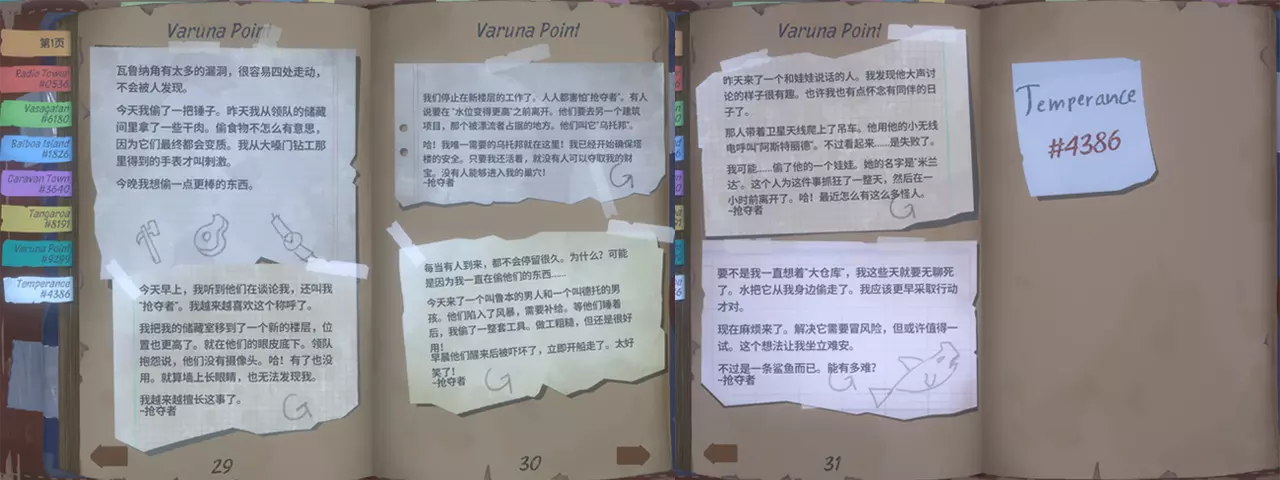 第1页
Radio Tower
#0536
Vasagatan
#6180
Balboa Island
#1826
Caravan Town
#3640
Tangaroa
#8191
Varuna Point
#9299
Temperance
#4386
Varuna Point
瓦鲁纳角有太多的漏洞，很容易四处走动，
不会被人发现。
今天我偷了一把锤子。昨天我从领队的储藏
间里拿了一些干肉。偷食物不怎么有意思，
因为它们最终都会变质。我从大嗓门钻工那
里得到的手表才叫刺激。
今晚我想偷一点更棒的东西。
今天早上，我听到他们在谈论我，还叫我
"抢夺者"。我越来越喜欢这个称呼了。
我把我的储藏室移到了一个新的楼层，位
置也更高了。就在他们的眼皮底下。领队
抱怨说，他们没有摄像头。哈！有了也没
用。就算墙上长眼睛，也无法发现我。
我越来越擅长这事了。
-抢夺者
29
Varuna Point
我们停止在新楼层的工作了。人人都害怕"抢夺者"。有人
说要在"水位变得更高"之前离开。他们要去另一个建筑
项目，那个被漂流者占据的地方。他们叫它"乌托邦"。
哈！我唯一需要的乌托邦就在这里！我已经开始确保塔
楼的安全。只要我还活着，就没有人可以夺取我的财
宝。没有人能够进入我的巢穴！
-抢夺者
每当有人到来，都不会停留很久。为什么？可能
是因为我一直在偷他们的东西……
今天来了一个叫鲁本的男人和一个叫德托的男
孩。他们陷入了风暴，需要补给。等他们睡着
后，我偷了一整套工具。做工粗糙，但还是很好
用！
早晨他们醒来后被吓坏了，立即开船走了。太好
笑了！
-抢夺者
30
Varuna Point
昨天来了一个和娃娃说话的人。我发现他大声讨
论的样子很有趣。也许我也有点怀念有同伴的日
子了。
那人带着卫星天线爬上了吊车。他用他的小无线
电呼叫"阿斯特丽德"。不过看起来……是失败了。
我可能……偷了他的一个娃娃。她的名字是"米兰
达"。这个人为这件事抓狂了一整天，然后在一
小时前离开了。哈！最近怎么有这么多怪人。
-抢夺者
要不是我一直想着"大仓库"，我这些天就要无聊死
了。水把它从我身边偷走了。我应该更早采取行动
才对。
现在麻烦来了。解决它需要冒风险，但或许值得一
试。这个想法让我坐立难安。
不过是一条鲨鱼而已。能有多难？
-抢夺者
31
Temperance
#4386